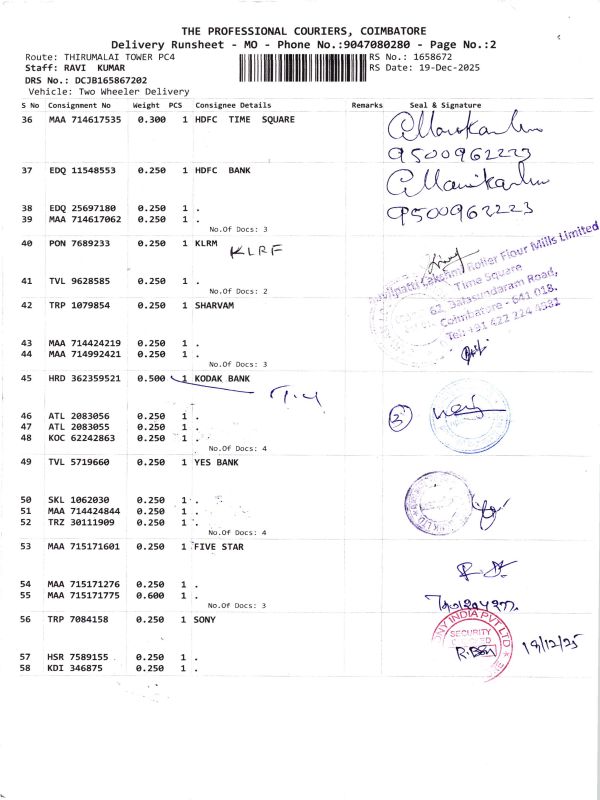 THE PROFESSIONAL COURIERS, COIMBATORE
Delivery Runsheet - MO - Phone No.:9047080280 - Page No.:2
Route: THIRUMALAI TOWER PC4
RS No.: 1658672
Staff: RAVI KUMAR
RS Date: 19-Dec-2025
DRS No.: DCJB165867202
Vehicle: Two Wheeler Delivery
S No Consignment No Weight PCS Consignee Details Remarks Seal & Signature
36 MAA 714617535 0.300 1 HDFC TIME SQUARE
9500962223
37 EDQ 11548553 0.250 1 HDFC BANK
38 EDQ 25697180 0.250 1 .
9500962223
39 MAA 714617062 0.250 1 .
No.Of Docs: 3
40 PON 7689233 0.250 1 KLRM
KLRF
Lakshmi Roller Flour Mills Limited
Time Square
62, Balasundaram Road,
Coimbatore - 641 018.
Tel: +91 422 224 4331
41 TVL 9628585 0.250 1 .
No.Of Docs: 2
42 TRP 1079854 0.250 1 SHARVAM
43 MAA 714424219 0.250 1 .
44 MAA 714992421 0.250 1 .
No.Of Docs: 3
45 HRD 362359521 0.500 1 KODAK BANK
3
46 ATL 2083056 0.250 1 .
47 ATL 2083055 0.250 1 .
48 KOC 62242863 0.250 1 .
No.Of Docs: 4
49 TVL 5719660 0.250 1 YES BANK
50 SKL 1062030 0.250 1 .
51 MAA 714424844 0.250 1 .
52 TRZ 30111909 0.250 1 .
No.Of Docs: 4
53 MAA 715171601 0.250 1 FIVE STAR
54 MAA 715171276 0.250 1 .
55 MAA 715171775 0.600 1 .
No.Of Docs: 3
56 TRP 7084158 0.250 1 SONY
SONY INDIA PVT LTD
SECURITY
19/12/25
57 HSR 7589155 0.250 1 .
58 KDI 346875 0.250 1 .